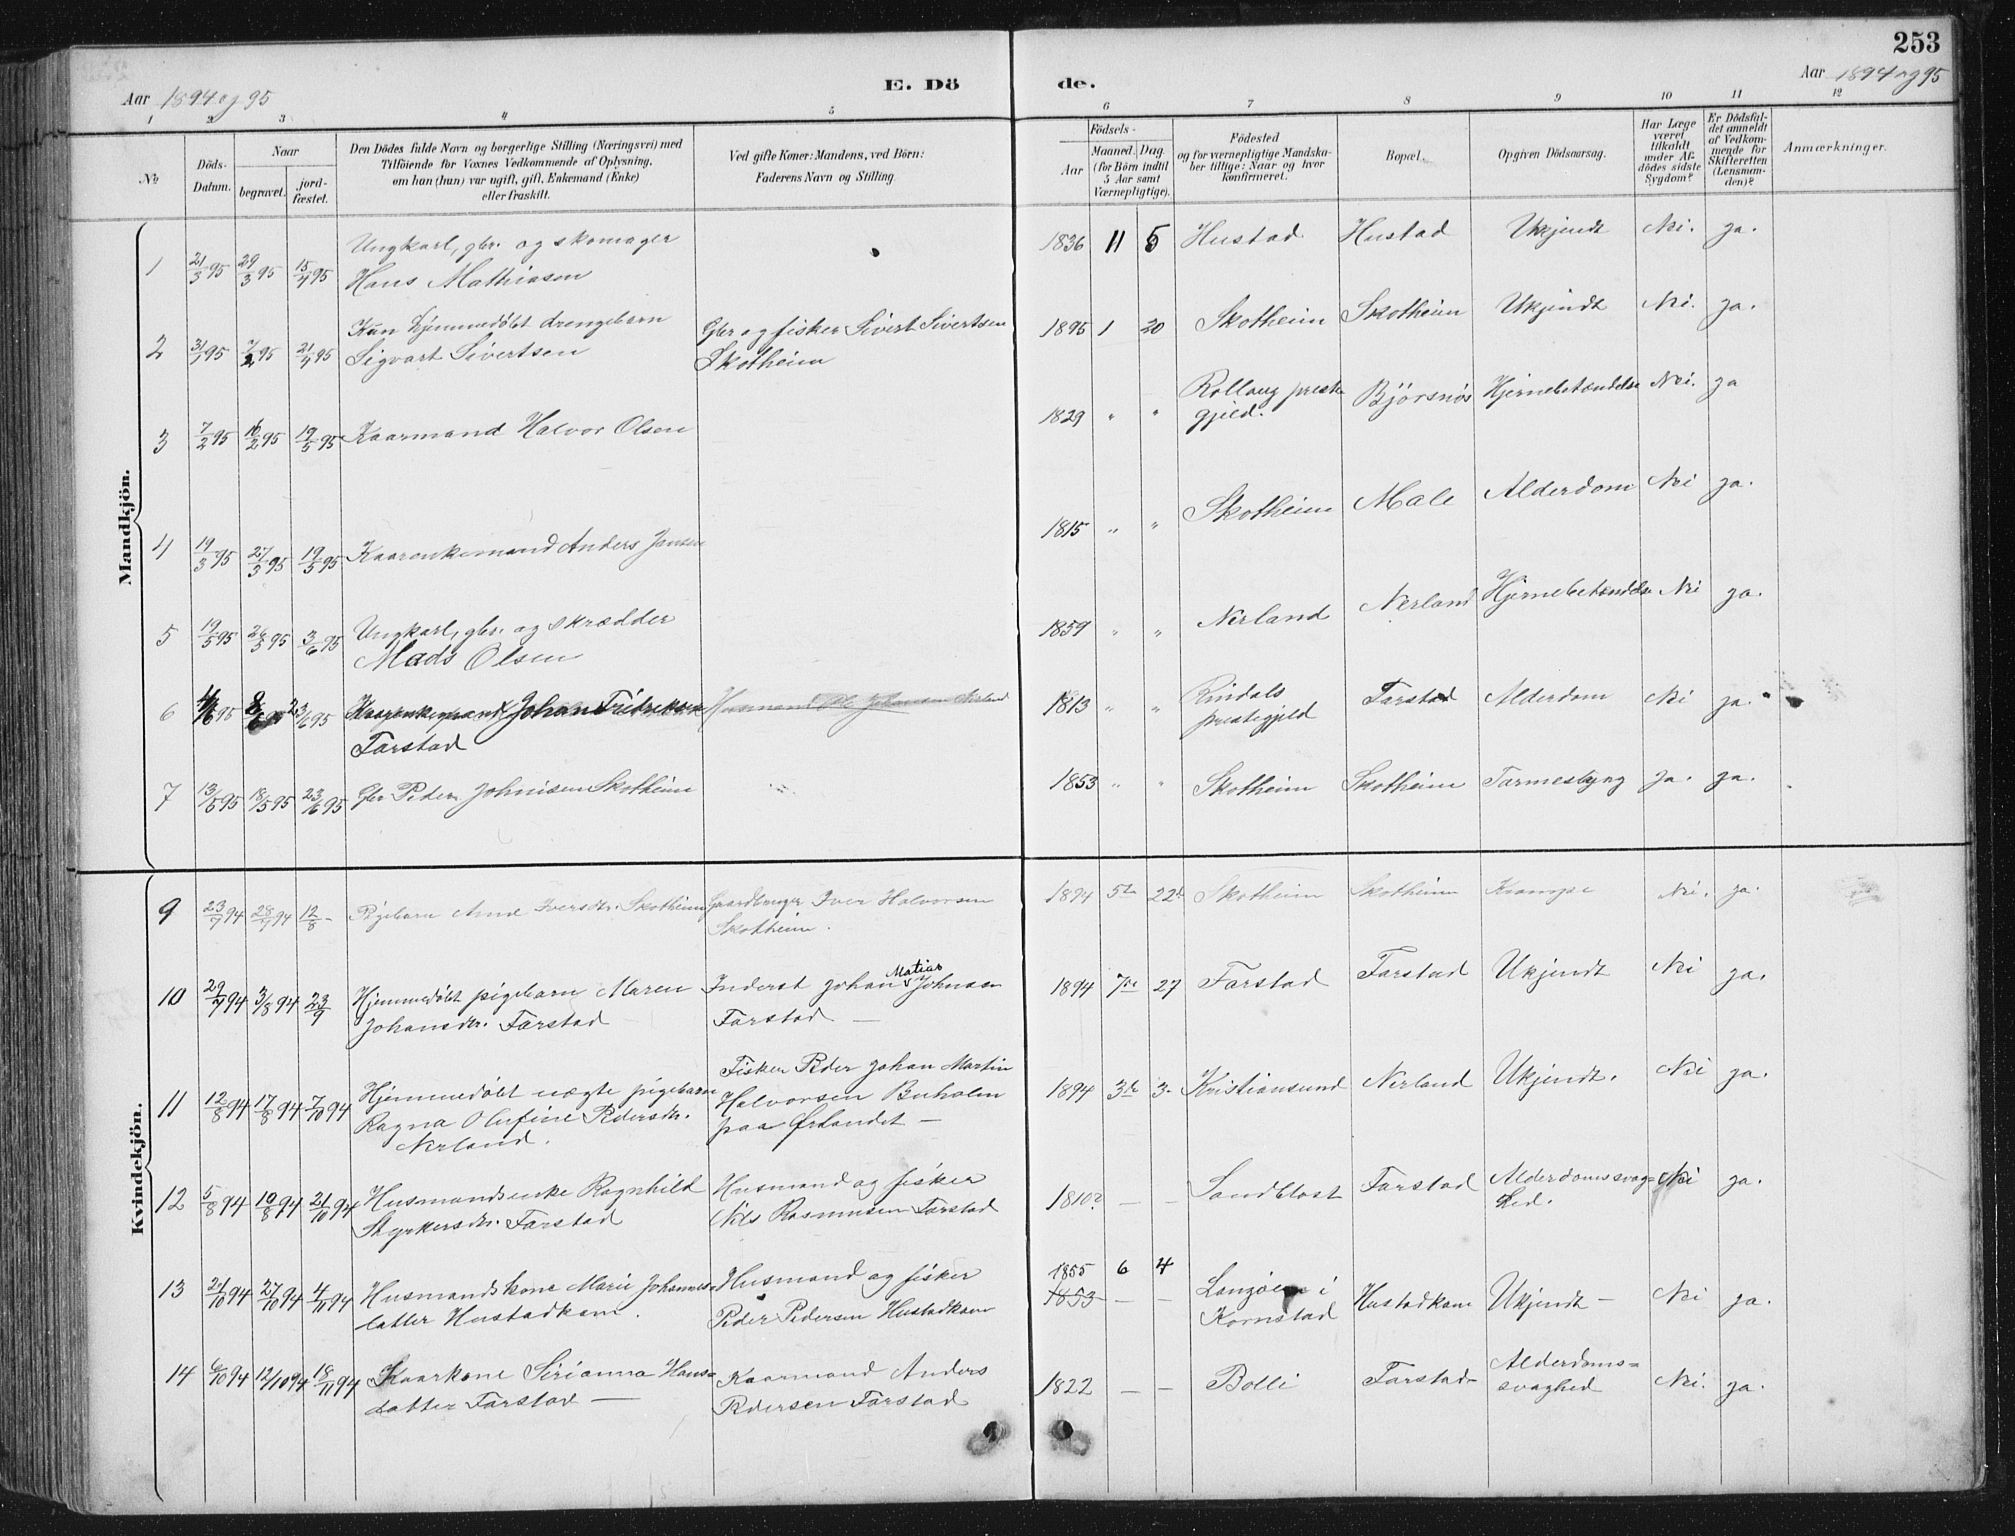 253
Aar 1894 og 95
E. Dö
de.
Aar 1894 og 95
1 2 3 4 5 6 7 8 9 10 11 12
No
Döds-Datum.
Naar
begravet.
jord-fæstet.
Den Dödes fulde Navn og borgerlige Stilling (Næringsvei) med
Tilföiende for Voxnes Vedkommende af Oplysning,
om han (hun) var ugift, gift, Enkemand (Enke)
eller fraskilt.
Ved gifte Koner: Mandens, ved Börn:
Faderens Navn og Stilling.
Födsels-
Aar
Maaned. Dag.
(for Börn indtil
5 Aar samt
Værnepligtige).
Födested
og for værnepligtige Mandska-
ber tillige: Naar og hvor
konfirmeret.
Bopæl.
Opgiven Dödsaarsag.
Har Læge
været
tilkaldt
under Af-
dödes sidste
Sygdom?
Er Dödsfal-
det anmeldt
af Vedkom-
mende for
Skifteretten
(Lensman-
den)?
Anmærkninger.
Mandkjön.
1 21/3 95 29/3 95 15/4 95 Ungkarl, gbr. og skomager
Hans Mathiasen
1836 11 5 Hustad Hustad Ukjendt Nei. ja.
2 31/1 95 7/2 95 21/4 95 Kun hjemmedöbt drengebarn
Sigvart Sivertsen
Gbr og fisker Sivert Sivertsen
Skotheim
1895 1 20 Skotheim Skotheim Ukjendt Nei. ja.
3 7/2 95 16/2 95 19/5 95 Kaarmand Halvor Olsen
1829 " " Rollaug preste
gjeld. Björsnös Hjernebetændelse Nei. ja
4 19/3 95 27/3 95 19/5 95 Kaarenkemand Anders Jansen
1815 " " Skotheim Male Alderdom Nei ja.
5 19/5 95 26/5 95 3/6 95 Ungkarl, gbr. og skrædder
Mads Olsen
1859 " " Nerland Nerland Hjernebetændelse Nei ja.
6 4/6 95 8/6 95 23/6 95 Kaarenkemand Johan Fredriksen
Farstad
Husmand Johansen Nerland
1813 " " Rindals
prestegjeld Farstad Alderdom Nei ja.
7 13/5 95 18/5 95 23/6 95 Gbr Peder Johnisen Skotheim
1853 " " Skotheim Skotheim Tarmeslyng ja. ja.
Kvindekjön.
9 23/7 94 28/7 94 12/8 - Pigebarn Ane Iversdtr. Skotheim
Gaardbruger Iver Halvorsen
Skotheim.
1894 5te 22de Skotheim Skotheim Krampe Nei. ja.
10 29/7 94 3/8 94 23/9 Hjemmedöbt pigebarn Maren
Johansdtr. Farstad
Inderst Johan Matias Johnsen
Farstad —
1894 7de 27 Farstad Farstad Ukjendt Nei ja.
11 12/8 94 17/8 94 7/10 94 Hjemmedöbt uægte pigebarn
Ragna Olufine Pedersdtr.
Nerland.
Fisker Peder Johan Martin
Halvorsen Buholm
paa Ørlandet —
1894 3de 3. Kristiansund Nerland Ukjendt. Nei ja.
12 5/8 94 10/8 94 21/10 94 Husmandsenke Ragnhild
Styrkersdtr. Farstad
Husmand og fisker
Nils Rasmusen Farstad
1810? — — Sandblost Farstad Alderdomssvag=
hed. Nei ja.
13 21/10 94 27/10 94 4/11 94 Husmandskone Marie Johannes=
datter Hustadkam.
Husmand og fisker
Peder Pedersen Hustadkam
1855 6 4
1853 — — Langöen i
Kornstad Hustadkam Ukjendt — Nei ja.
14 6/10 94 12/10 94 18/11 94 Kaarkone Sirianna Hans=
datter Farstad —
Kaarmand Anders
Pedersen Farstad
1822 — — Bolli Farstad- Alderdoms=
svaghed Nei. ja.